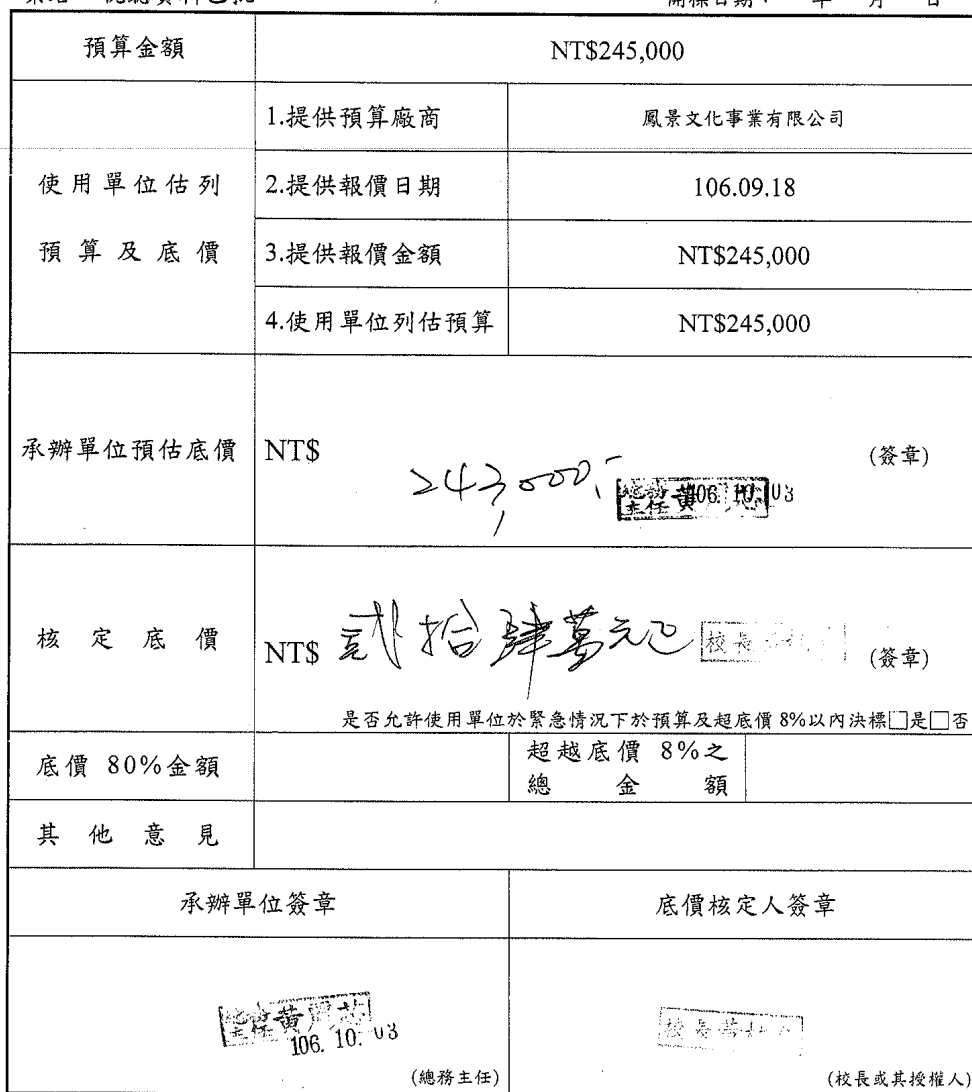 開標日期： 年 月 日
預算金額 NT$245,000
使用單位估列
預算及底價
1.提供預算廠商 鳳景文化事業有限公司
2.提供報價日期 106.09.18
3.提供報價金額 NT$245,000
4.使用單位列估預算 NT$245,000
承辦單位預估底價 NT$ 243,000.- 總務主任黃 106.10.03 (簽章)
核定底價 NT$ 貳拾肆萬元 校長 (簽章)
是否允許使用單位於緊急情況下於預算及超底價 8%以內決標□是□否
底價 80%金額
超越底價 8%之
總金額
其他意見
承辦單位簽章 底價核定人簽章
主任黃
106.10.03
校長
(總務主任) (校長或其授權人)